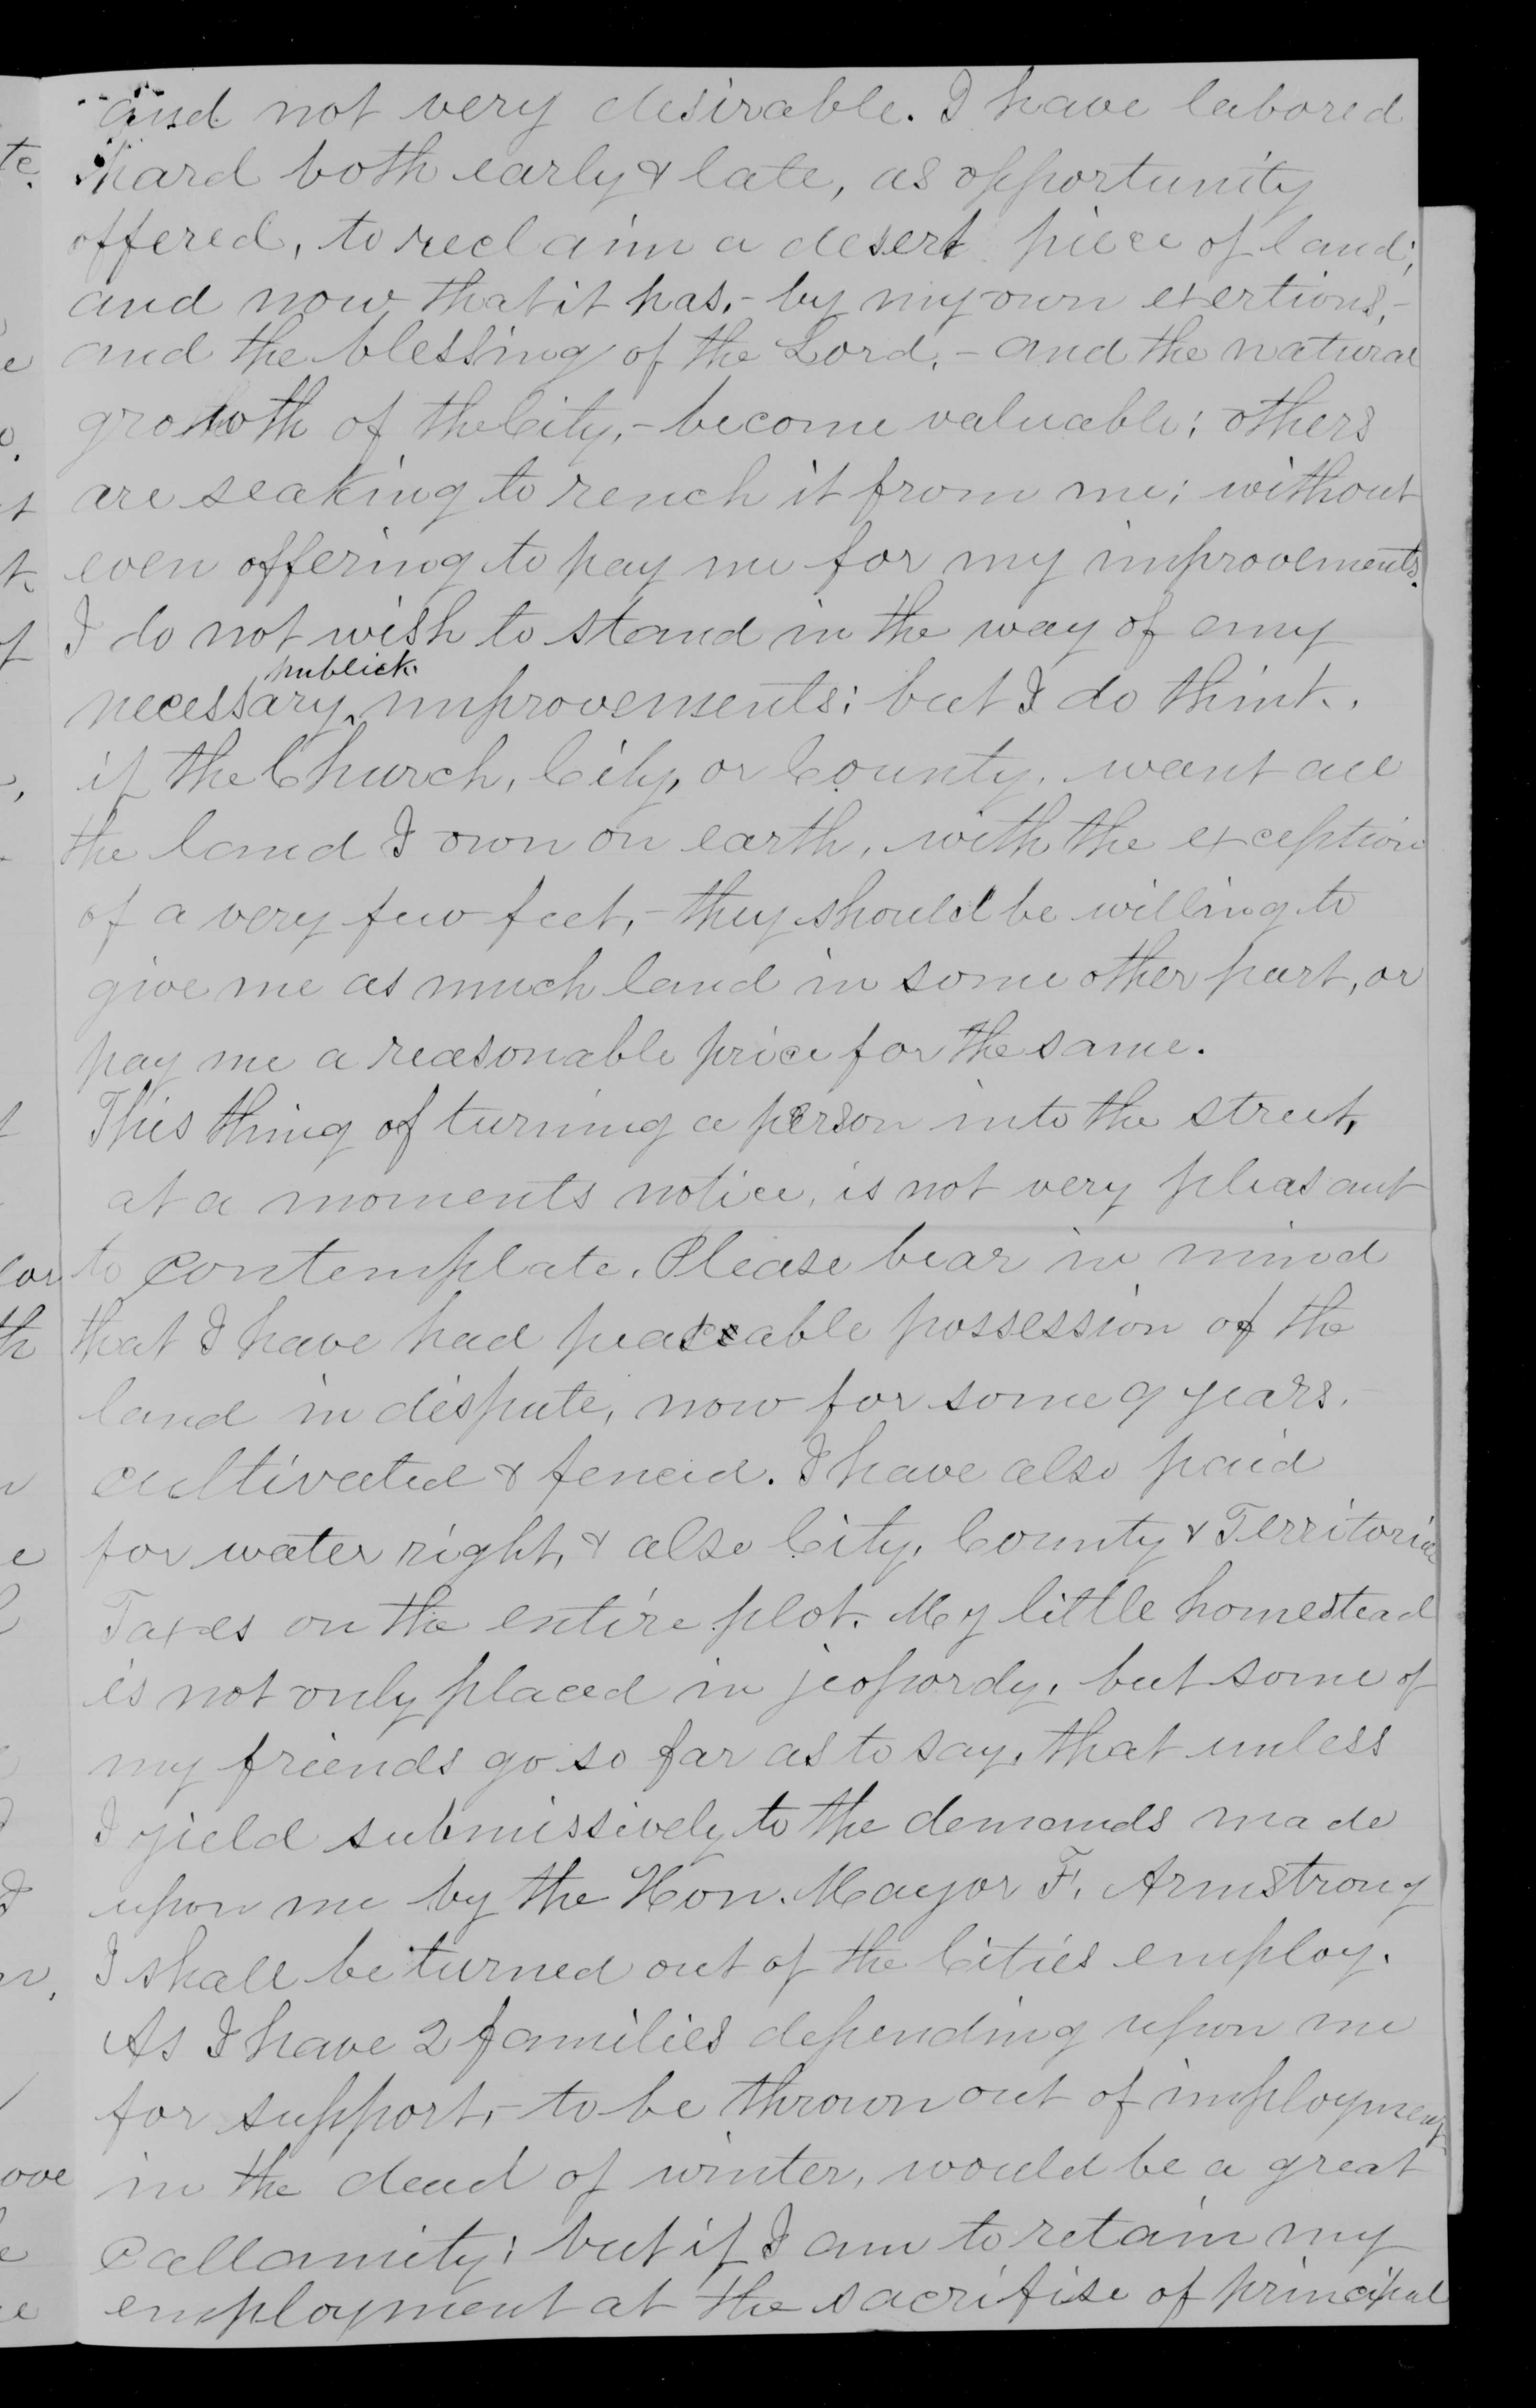 and not very desirable. I have labored
hard both early & late, as opportunity
offered, to reclaim a desert piece of land;
and now that it has, - by my own exertions, -
and the blessing of the Lord, - and the natural
growth of the City, - become valuable; others
are seaking to rench it from me; without
even offering to pay me for my improvements.
I do not wish to stand in the way of any
publick
necessary ^ improvements; but I do think,
if the Church, City, or County, want all
the land I own on earth, with the exception
of a very few feet, - they should be willing to
give me as much land in some other part, or
pay me a reasonable price for the same.
This thing of turning a person into the street,
at a moments notice, is not very pleasant
to contemplate. Please bear in mind
that I have had peaceable possession of the
land in dispute, now for some 9 years,
cultivated & fenced. I have also paid
for water right, & also City, County & Territorial
Taxes on the entire plot. My little homestead
is not only placed in jeopordy, but some of
my friends go so far as to say, that unless
I yield submissively to the demands made
upon me by the Hon. Mayor F. Armstrong
I shall be turned out of the Cities employ.
As I have 2 families depending upon me
for support, - to be thrown out of imployment
in the dead of winter, would be a great
callamity; but if I am to retain my
employment at the sacrifise of principal